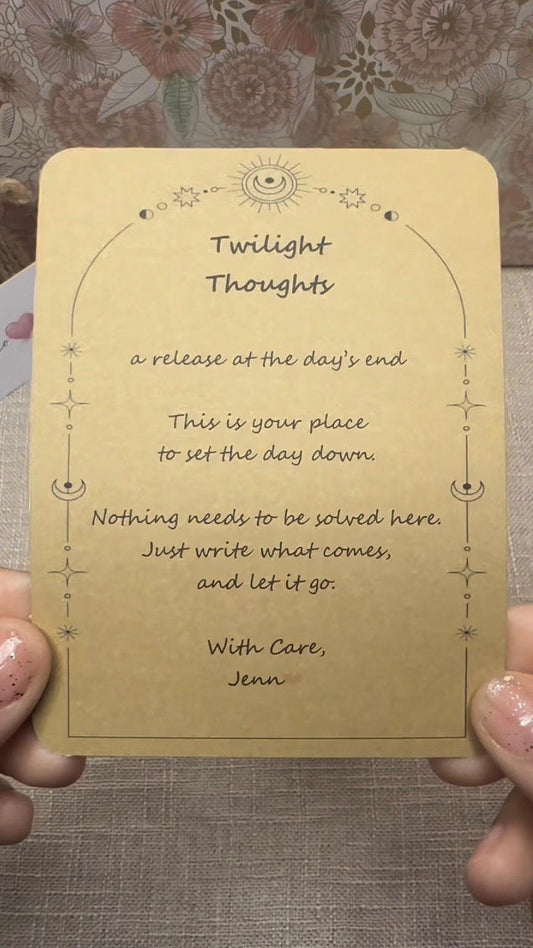 Twilight
Thoughts
a release at the day's end
This is your place
to set the day down.
Nothing needs to be solved here.
Just write what comes,
and let it go.
With Care,
Jenn